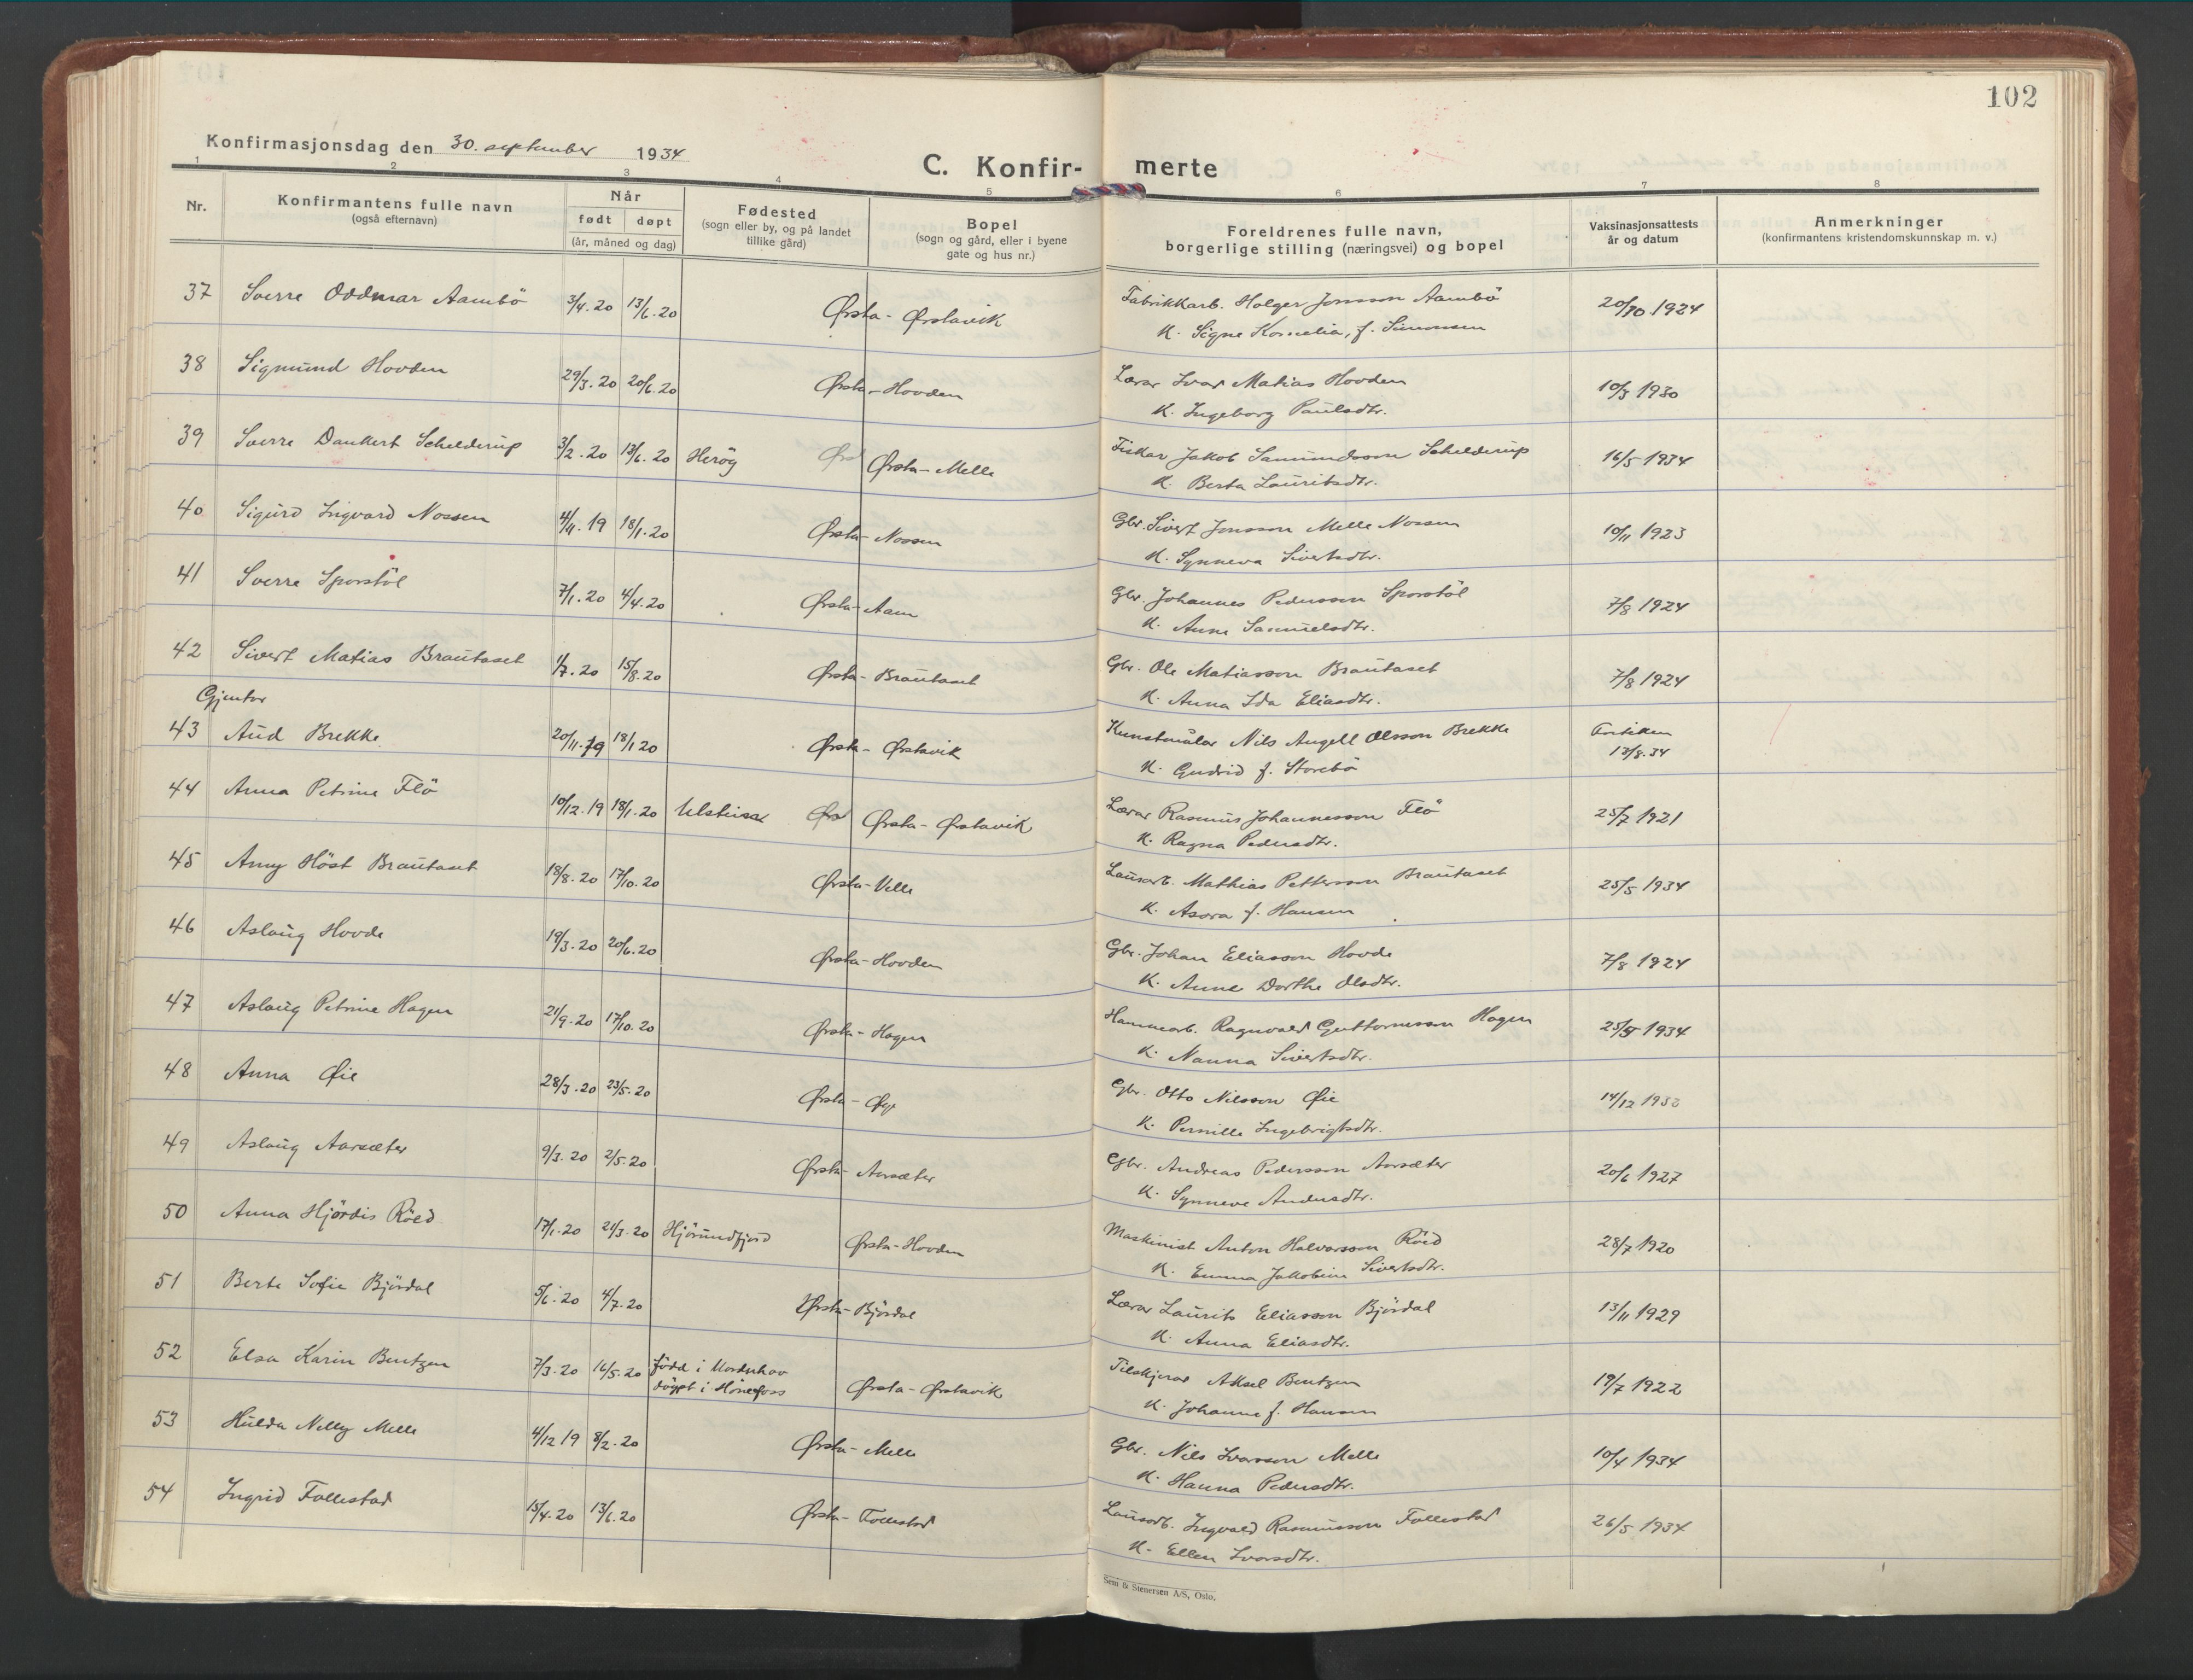 102
Konfirmasjonsdag den 30. september 1934
C. Konfir- merte
1 2 3 4 5 6 7 8
Nr.
Konfirmantens fulle navn
(også efternavn)
Når
født døpt
(år, måned og dag)
Fødested
(sogn eller by, og på landet
tillike gård)
Bopel
(sogn og gård, eller i byene
gate og hus nr.)
Foreldrenes fulle navn,
borgerlige stilling (næringsvei) og bopel
Vaksinasjonsattests
år og datum
Anmerkninger
(konfirmantens kristendomskunnskap m. v.)
37 Sverre Oddmar Aambö 3/4.20 13/6.20 Ørsta - Ørstavik Fabrikkarb. Holger Jonsson Aambö 20/10 1924
K. Signe Kornelia, f. Simonsen
38 Sigmund Hovden 29/3.20 20/6.20 Ørsta - Hovden Lærar Ivar Matias Hovden 10/3 1930
K. Ingeborg Paulsdtr.
39 Sverre Dankert Schelderup 3/2.20 13/6.20 Heröy Ørs Ørsta - Melle Fiskar Jakob Samundsson Schelderup 16/5 1934
K. Berta Lauritsdtr.
40 Sigurd Ingvard Nossen 4/11.19 18/1.20 Ørsta - Nossen Gbr. Sivert Jonsson Melle Nossen 10/11 1923
K. Synneva Sivertsdtr.
41 Sverre Sporstöl 7/1.20 4/4.20 Ørsta - Aam Gbr. Johannes Pedersson Sporstöl 7/8 1924
K. Anne Samuelsdtr.
42 Sivert Matias Brautaset 1/7.20 15/8.20 Ørsta - Brautaset Gbr. Ole Matiasson Brautaset 7/8 1924
K. Anna Ida Eliasdtr.
Gjentor
43 Aud Brekke 20/11.19 18/1 20 Ørsta - Ørstavik Kunstmålar Nils Angell Olsson Brekke
13/8.34
K. Gudrid f. Storebö
44 Anna Petrine Flö 10/12.19 18/1.20 Ulstein Ørs Ørsta - Ørstavik Lærar Rasmus Johannesson Flö 25/7 1921
K. Ragna Pedersdtr.
45 Amy Höst Brautaset 18/8.20 17/10.20 Ørsta - Velle Lausarb. Mathias Pettersson Brautaset 25/5 1934
K. Asora f. Hansen
46 Aslaug Hovde 19/3.20 20/6.20 Ørsta - Hovden Gbr. Johan Eliasson Hovde 7/8 1924
K. Anne Dorthe Olsdtr.
47 Aslaug Petrine Hagen 21/9.20 17/10.20 Ørsta - Hagen Hammarb. Ragnvald Guttormsson Hagen 25/5 1934
K. Nanna Sivertsdtr.
48 Anna Øie 28/3.20 23/5.20 Ørsta - Øye Gbr. Otto Nilsson Øie 14/12
K. Pernille Ingebrigtsdtr.
49 Aslaug Aarsæter 9/3.20 2/5.20 Ørsta - Aarsæter Gbr. Andreas Pedersson Aarsæter 20/6 1927
K. Synneve Andersdtr.
50 Anna Hjördis Röed 17/1.20 21/3.20 Hjörundfjord Ørsta - Hovden Maskinist Anton Halvorsson Röed 28/7 1920
K. Emma Jakobine Sivertsdtr.
51 Berte Sofie Björdal 5/6.20 4/7.20 Ørsta - Björdal Lærar Laurits Eliasson Björdal 13/11 1929
K. Anna Eliasdtr.
52 Elsa Karin Bentzen 7/3.20 16/5.20 född i Norderhov
döypt i Hönefoss Ørsta - Ørstavik Tilskjerar Aksel Bentzen 19/7 1922
K. Johanne f. Hansen
53 Hulda Nelly Melle 4/12 19 8/2.20 Ørsta - Melle Gbr. Nils Ivarsson Melle 10/4 1934
K. Hanna Pedersdtr.
54 Ingrid Follestad 15/4.20 13/6.20 Ørsta - Follestad Lausarb. Ingvald Rasmusson Follestad 26/5 1934
K. Ellen Ivarsdtr.
Sem & Stenersen A/S, Oslo.